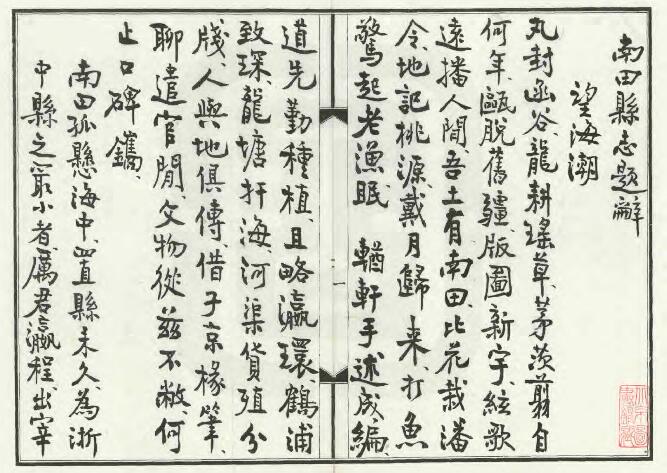 南田縣志題辭
望海潮
丸封函谷、龍耕瑤草、茅茨翦自
何年、甌脫舊疆、版圖新宇、絃歌
遠播人間、吾土有南田、比花栽潘
令、地記桃源、戴月歸來、打魚
驚起老漁眠、輶軒手述成編、
道先勤種植、且略瀛環、鶴浦
致琛、龍塘扞海、河渠貨殖分
牋、人與地俱傳、借子京椽筆、
聊遣官閒、文物從茲不敝、何
止口碑鐫
南田孤懸海中、置縣未久、為浙
中縣之最小者、厲君瀛程、出宰